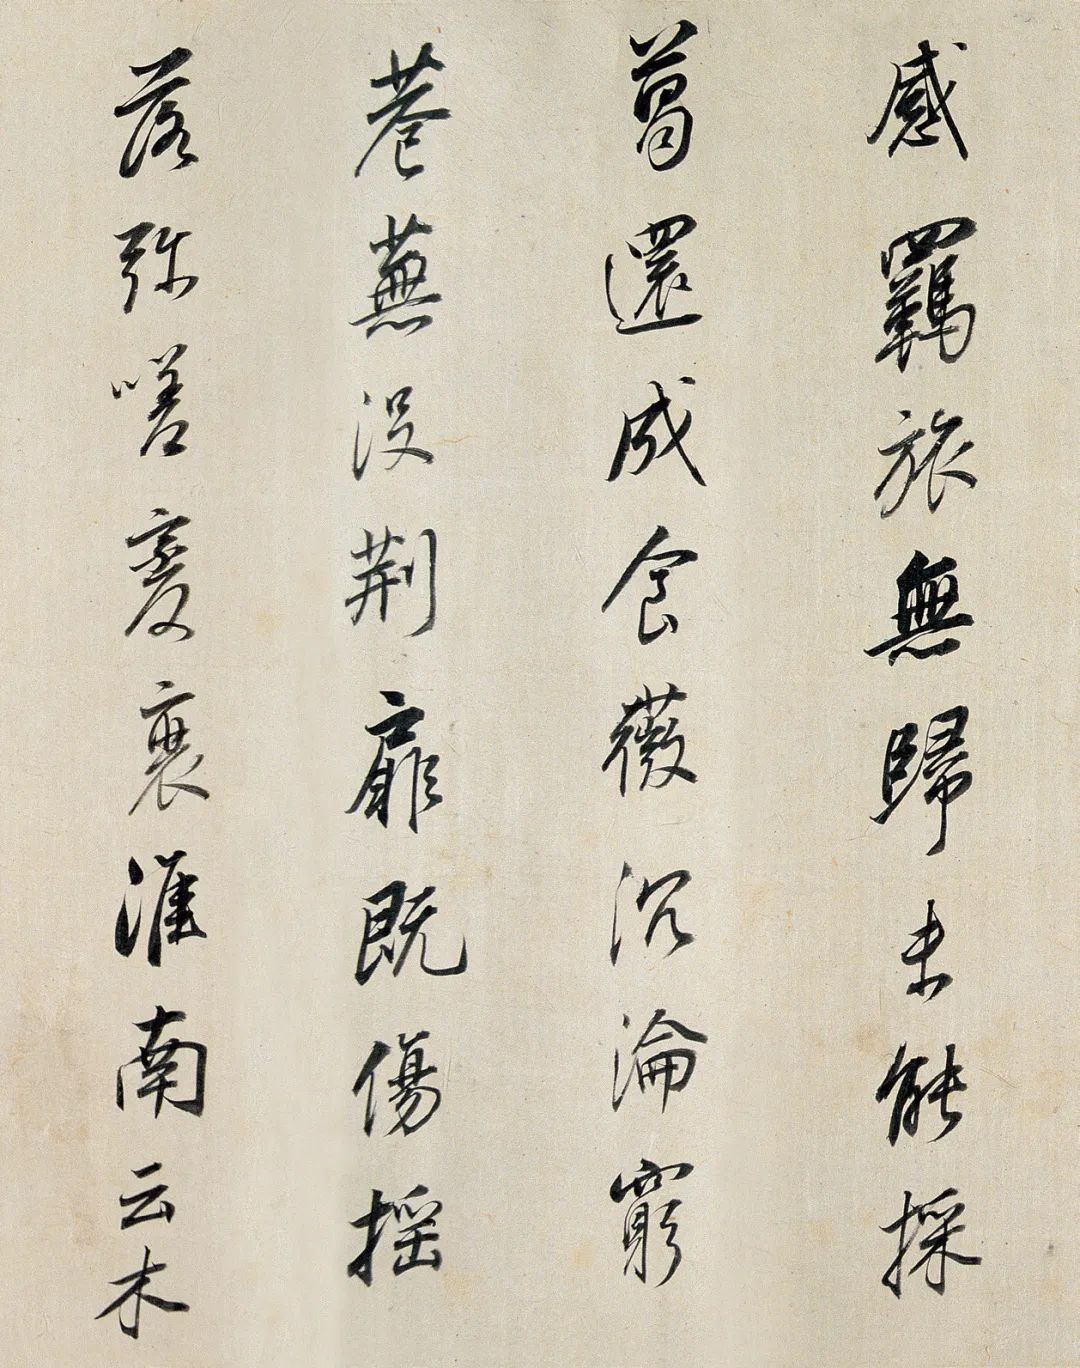 感羈旅無歸未能採
葛還成食薇沉淪窮
巷蕪没荆扉既傷摇
落弥嗟變衰淮南云木